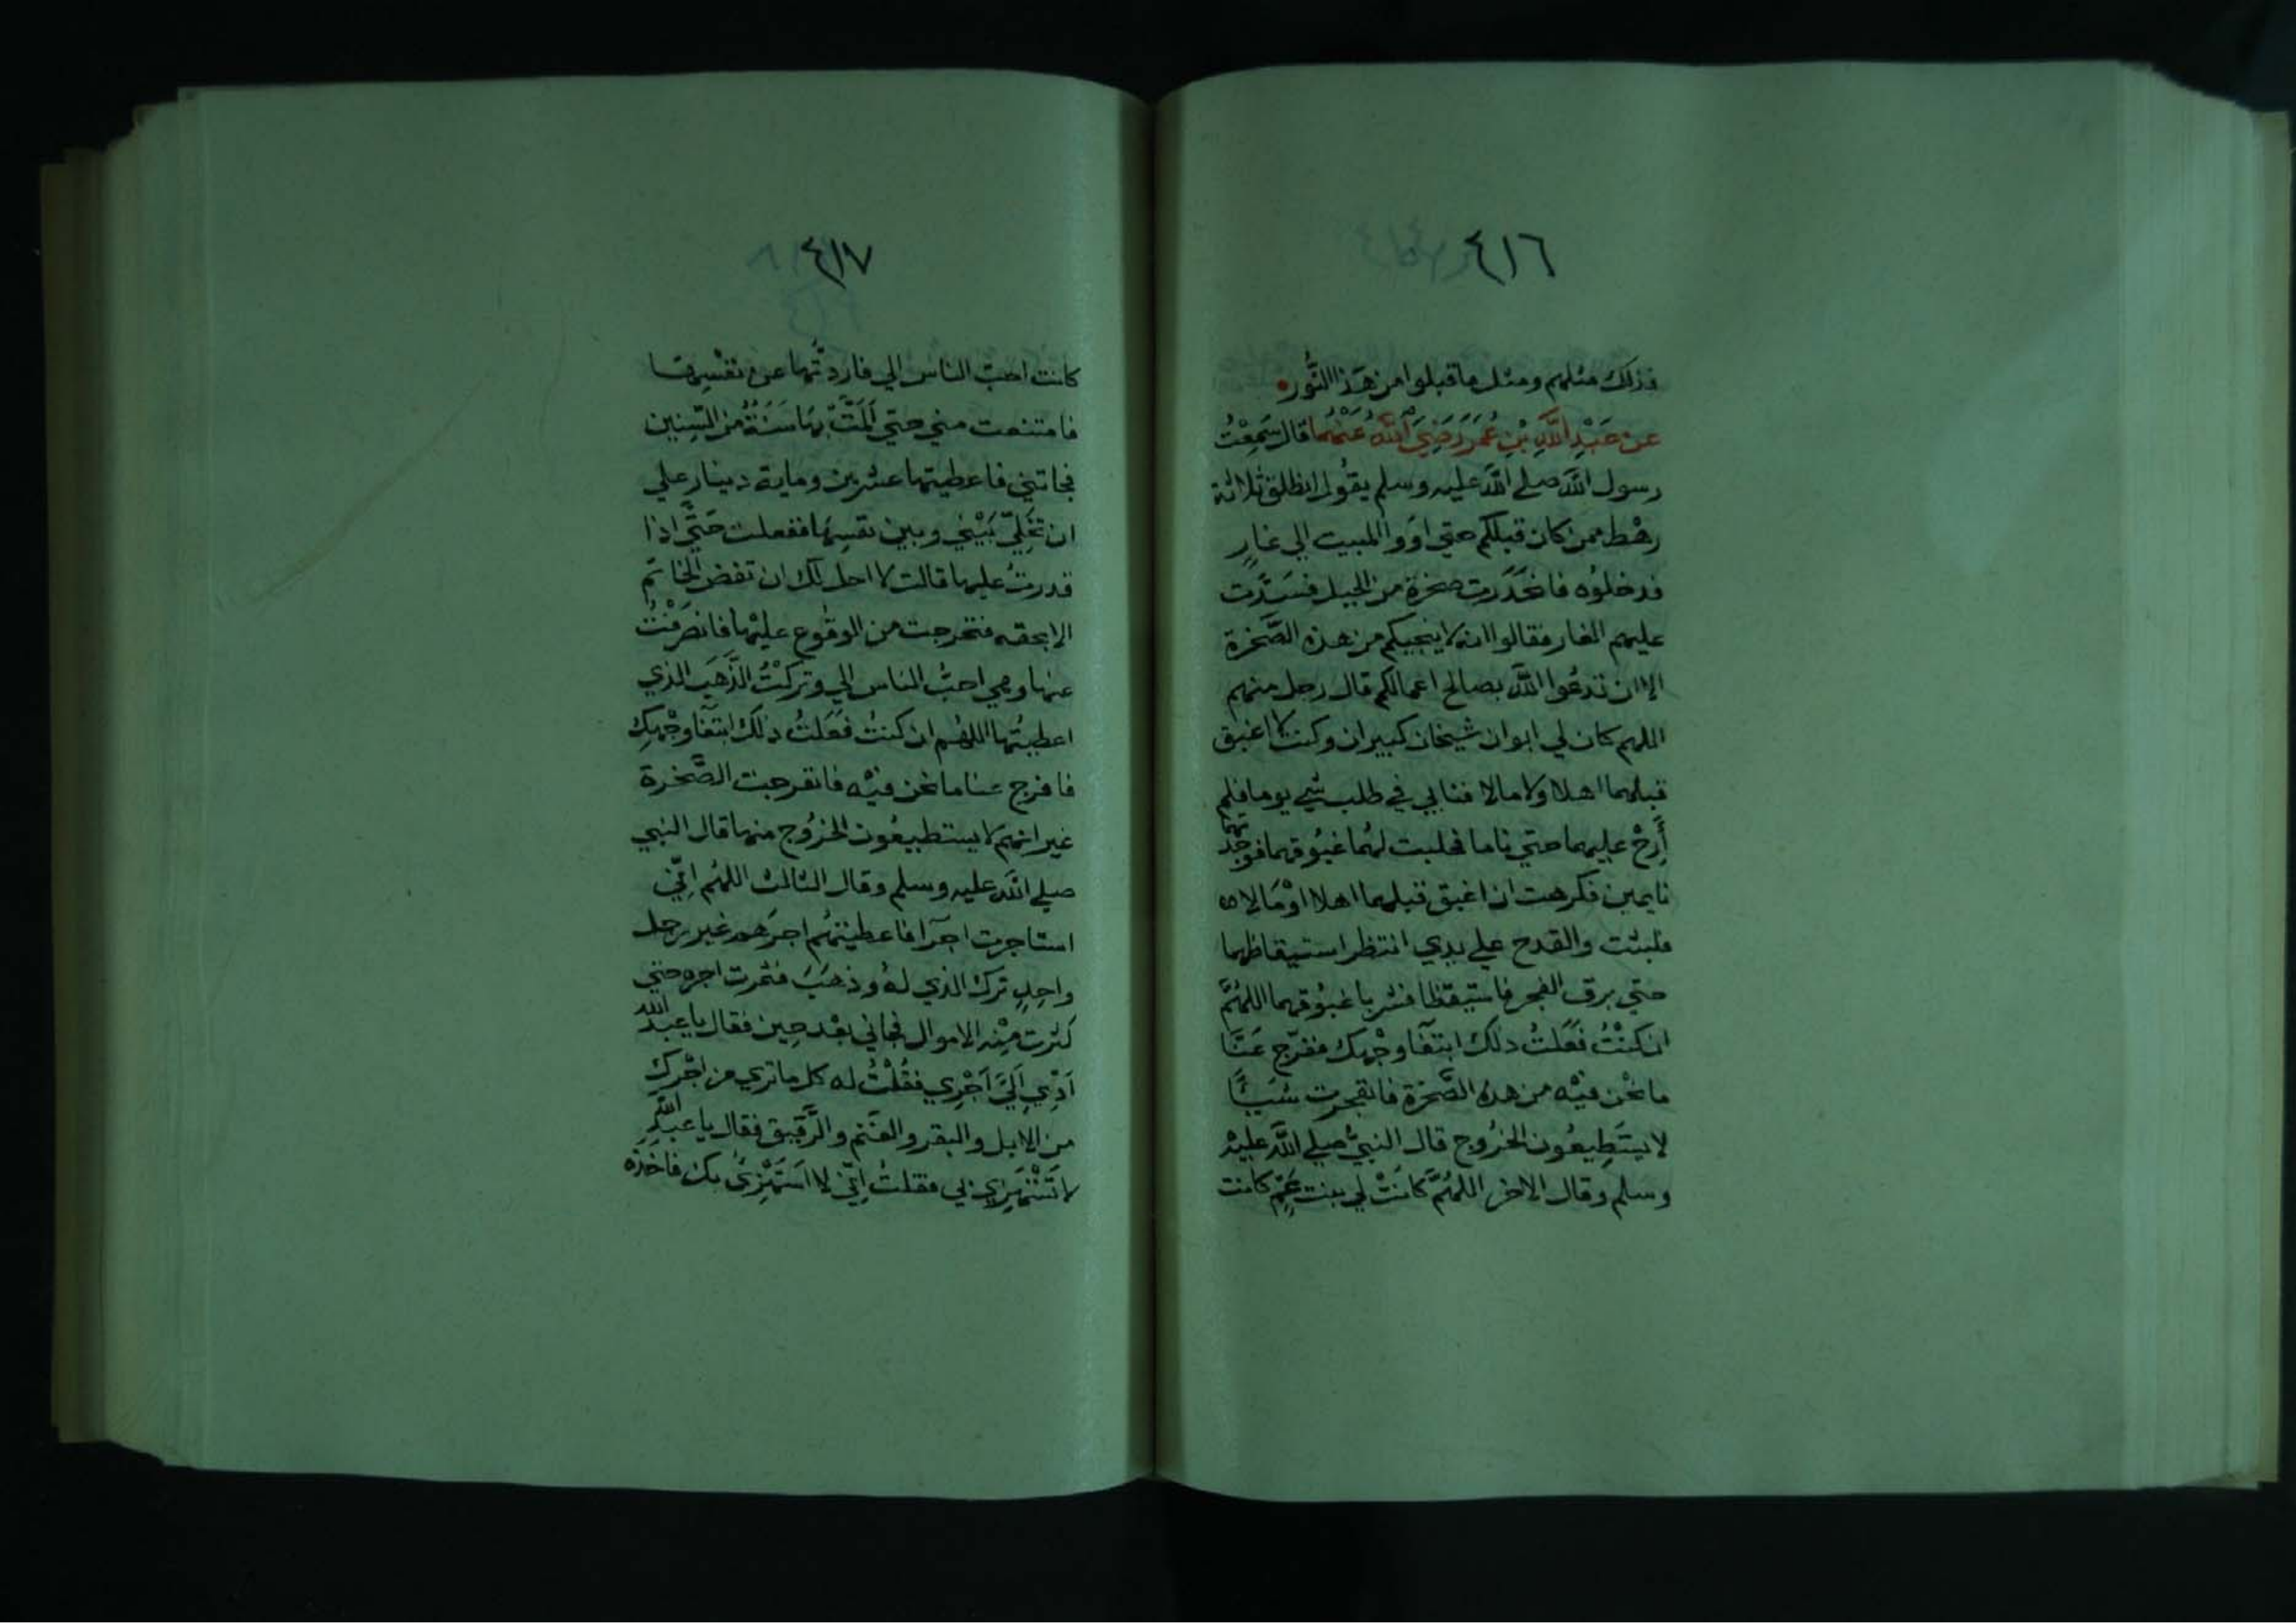 ٤١٦
فذلك مثلهم ومثل ما قبلوا من هَذا النُّور
عن عَبْدِ اللَّهِ بْنِ عُمَرَ رَضِيَ اللَّهُ عَنْهُما قال سَمِعْتُ
رسول الله صلي الله عليه وسلم يقُول انطلق ثلاثة
رهْط ممن كان قبلكم حتي اوَوا المبيت الي غارٍ
فدخلوُه فانحَدَرت صخرة من الجبل فسَدَّت
عليهم الغار فقالوا انه لا ينجيكم من هذه الصَّخرة
الا ان تدعُوا الله بصالح اعمالكم قال رجل منهم
اللهم كان لي ابوان شيخان كبيران وكنت لا اغبق
قبلهما اهلا ولا مالا فنابي في طلب شي يوما فلم
أَرِحْ عليهما حتي ناما فحلبت لهُما غبُوقهما فوجدتهما
نايمين فكرهت ان اغبق قبلهما اهلا اوْ مَالا
فلبثت والقدح علي يدي انتظر استيقاظهما
حتي برق الفجر فاستيقظا فشربا غبُوقهما اللهُمَّ
ان كنْتُ فَعَلتُ ذلك ابتغآ وجْهك ففرّج عَنَّا
ما نحْن فيْه من هذهِ الصَّخرَة فانفجرت شَيـًٔا
لا يستَطِيعُون الخرُوج قال النبيُّ صلي اللَّه عليْه
وسلم وَقال الاخر اللهُمَّ كانَتْ لي بنت عَمّ كانت
٤١٧
كانت احبّ الناس الي فاردتُّها عن نفْسِها
فامتنعت مني حتي اَلَمَّتْ بهَا سَنَةٌ من السِّنين
فجاتني فاعطيتها عشرين وماية دينار علي
ان تخَلِّيَ بَيْني وبين نفسِهَا ففعلت حَتَّي اذا
قدرتُ عليها قالت لا احل لك ان تفض الخاتَم
الا بحقه فتحرجت من الوقُوع عليْها فانصَرَفْتُ
عنها وهي احبُّ الناس الي وتركْتُ الذَّهَبَ الذي
اعطيتُها اللهُم ان كنتُ فَعَلتُ ذلك ابتغآ وجْهِك
فافرج عنا ما نحن فيْه فانفرجت الصَّخرة
غير انهم لا يستطيعُون الخرُوج منها قال النبي
صلي الله عليه وسلم وقال الثالث اللهُم اِنّي
استاجرت اجرآ فاعطيتهُم اجرَهم غير رجل
واحِدٍ ترك الذي لهُ وذهَبَ فثمرت اجره حتي
كثرت مِنْه الاموال فجاني بعْد حِين فقال يا عبد الله
اَدِّي اِلَيَّ اَجْرِي فقُلْتُ له كل ما تري من اجْرك
من الابل والبقر والغَنم والرَّقيق فقال يا عبد الله
لا تَسْتَهْزِئ بي فقلتُ اِنّي لا اَسْتَهْزِئُ بك فاخذه